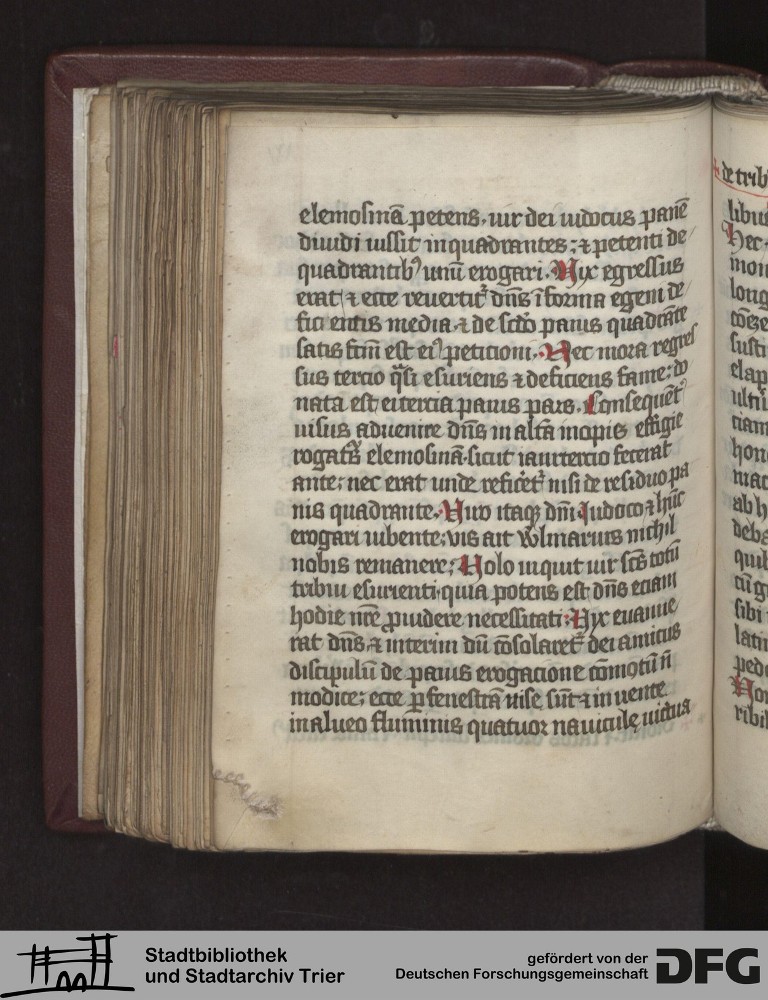 elemosinā petens. uir dei iudocus panē
diuidi iussit in quadrantes; ⁊ petenti de
quadrantibꝰ unū erogari. Vix egressus
erat / ⁊ ecce reuertit᷑ dn̄s ī forma egeni de/
fici entis media ⁊ de sc̄do panis quadrāte
satis fc̄m est eiꝰ peticioni. Nec mora regres
sus tercio q̄si esuriens ⁊ deficiens fame: do
nata est ei tercia panis pars. Consequēt᷑
uisus aduenire dn̄s in alta inopis effigie
rogat᷑ elemosinā. sicut iam tercio fecerat
ante; nec erat unde reficet᷑ nisi de residuo pa
nis quadrante. Viro itaqꝫ dn̄i Iudoco ⁊ hūc
erogari iubente; vis ait wlmarius nichil
nobis remanere; Volo inquit uir sc̄s totū
tribui esurienti. quia potens est dn̄s eciam
hodie nr̄e ꝓuidere necessitati: Vix euanue/
rat dn̄s. ⁊ interim dū cōsolaret᷑ dei amicus
discipulū de panis erogacione cōmotū n̄
modice; ecce ꝑ fenestrā uise sūt ⁊ inuente
in alueo fluminis quatuor nauicule uictua
de trib
libus
Hec
mon
long
susti
elap
ultū
ciam
hono
mac
ab h
deba
quib
cū g
sibi
latu
pede
Non
ribil
Stadtbibliothek
und Stadtarchiv Trier
gefördert von der
Deutschen Forschungsgemeinschaft
DFG